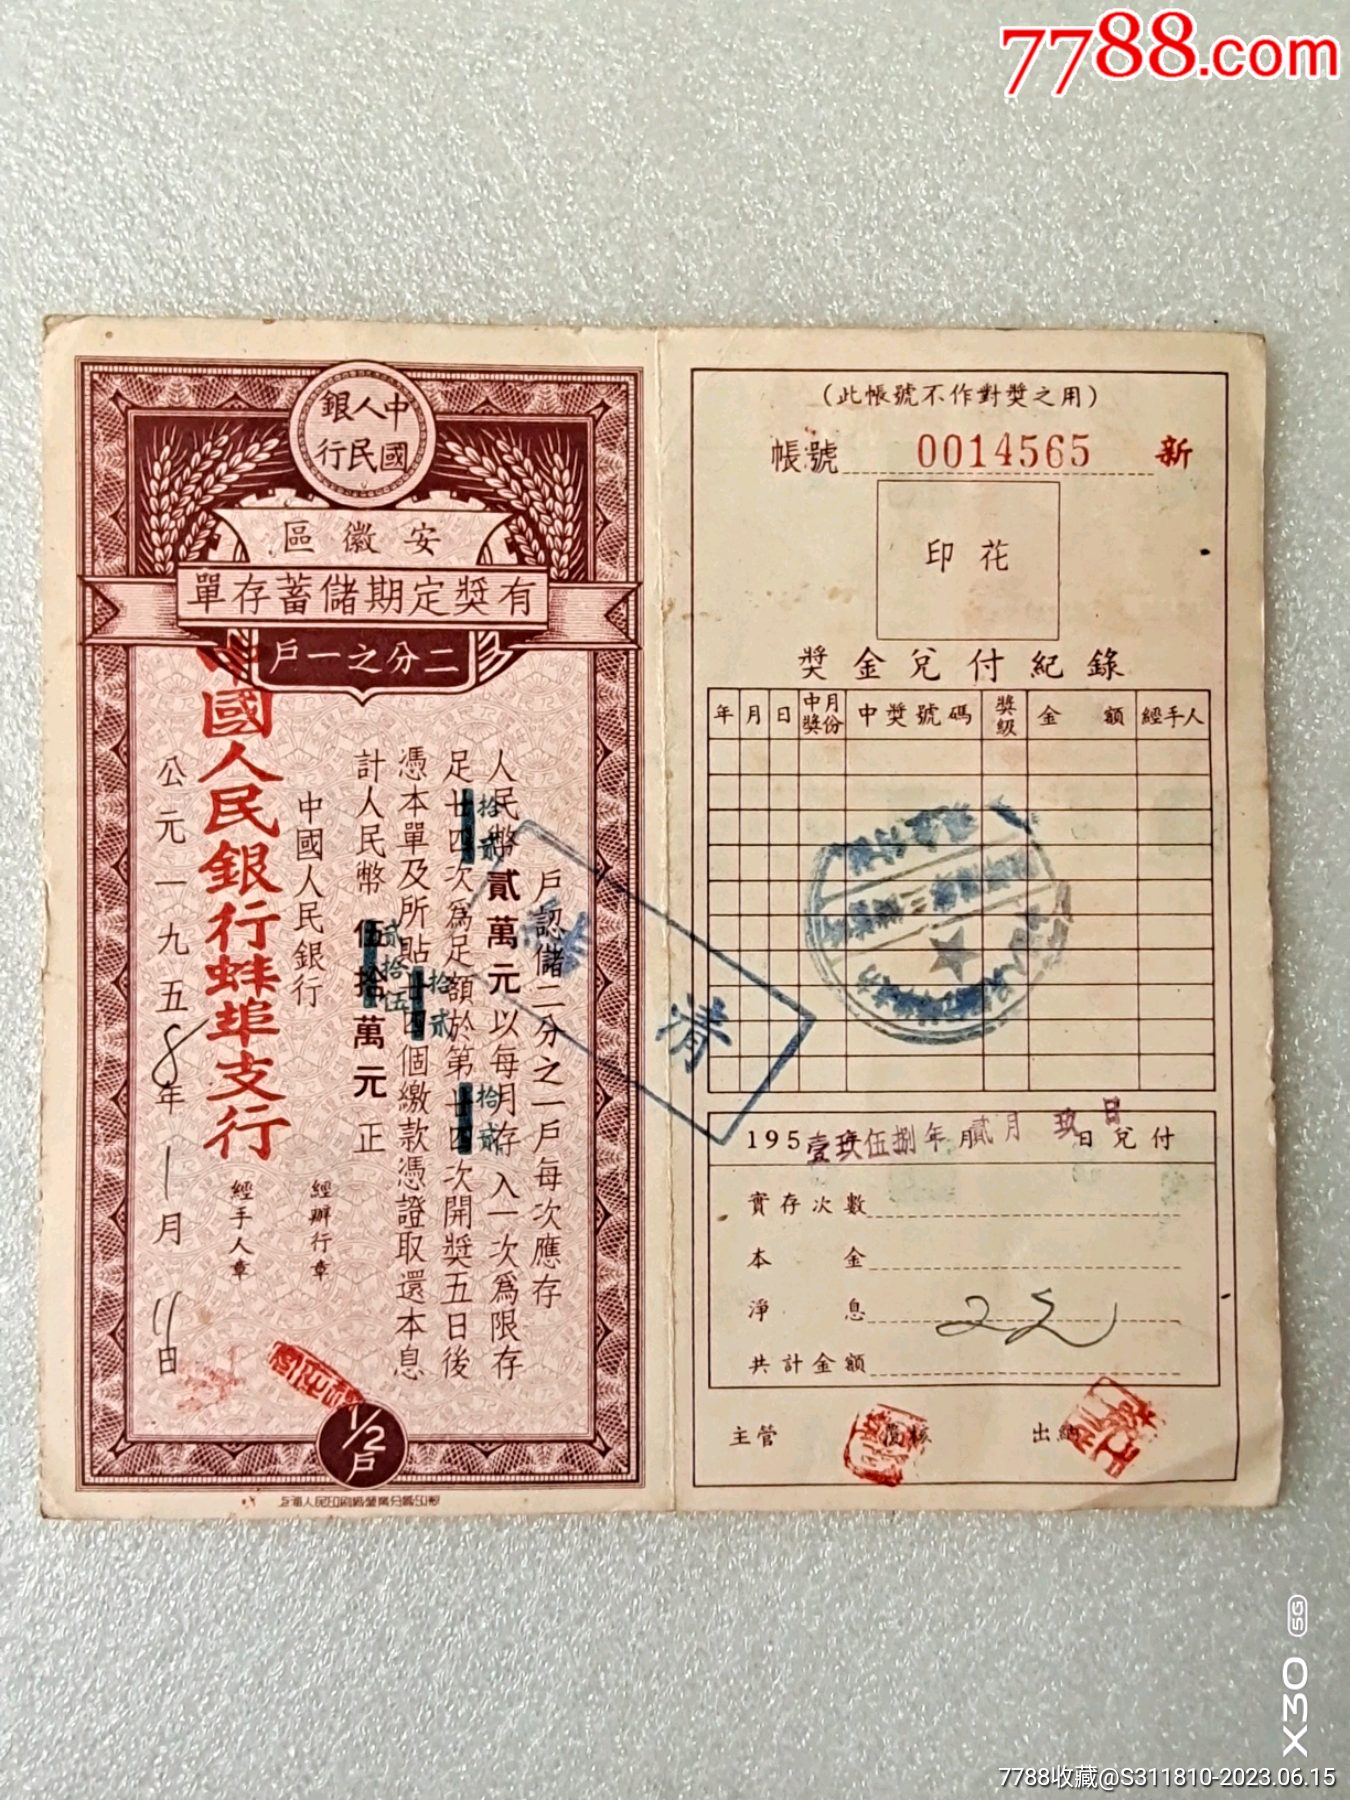 7788.com
中國人民銀行
安徽區
有獎定期儲蓄存單
二分之一戶
戶認儲二分之一戶每次應存
人民幣貳萬元以每月存入一次爲限存
足廿四次爲足額於第廿四次開獎五日後
拾貳
拾貳
憑本單及所貼廿四個繳款憑證取還本息
拾貳
計人民幣伍拾萬元正
貳拾伍
中國人民銀行
經辦行章
經手人章
中國人民銀行蚌埠支行
公元一九五8年1月11日
1/2戶
(此帳號不作對獎之用)
帳號 0014565 新
印花
獎金兌付紀錄
年 月 日 中獎月份 中獎號碼 獎級 金額 經手人
清
195壹玖伍捌年貳月玖日兌付
實存次數
本金
淨息
共計金額
主管 覆核 出納
X30 5G
7788收藏@S311810-2023.06.15